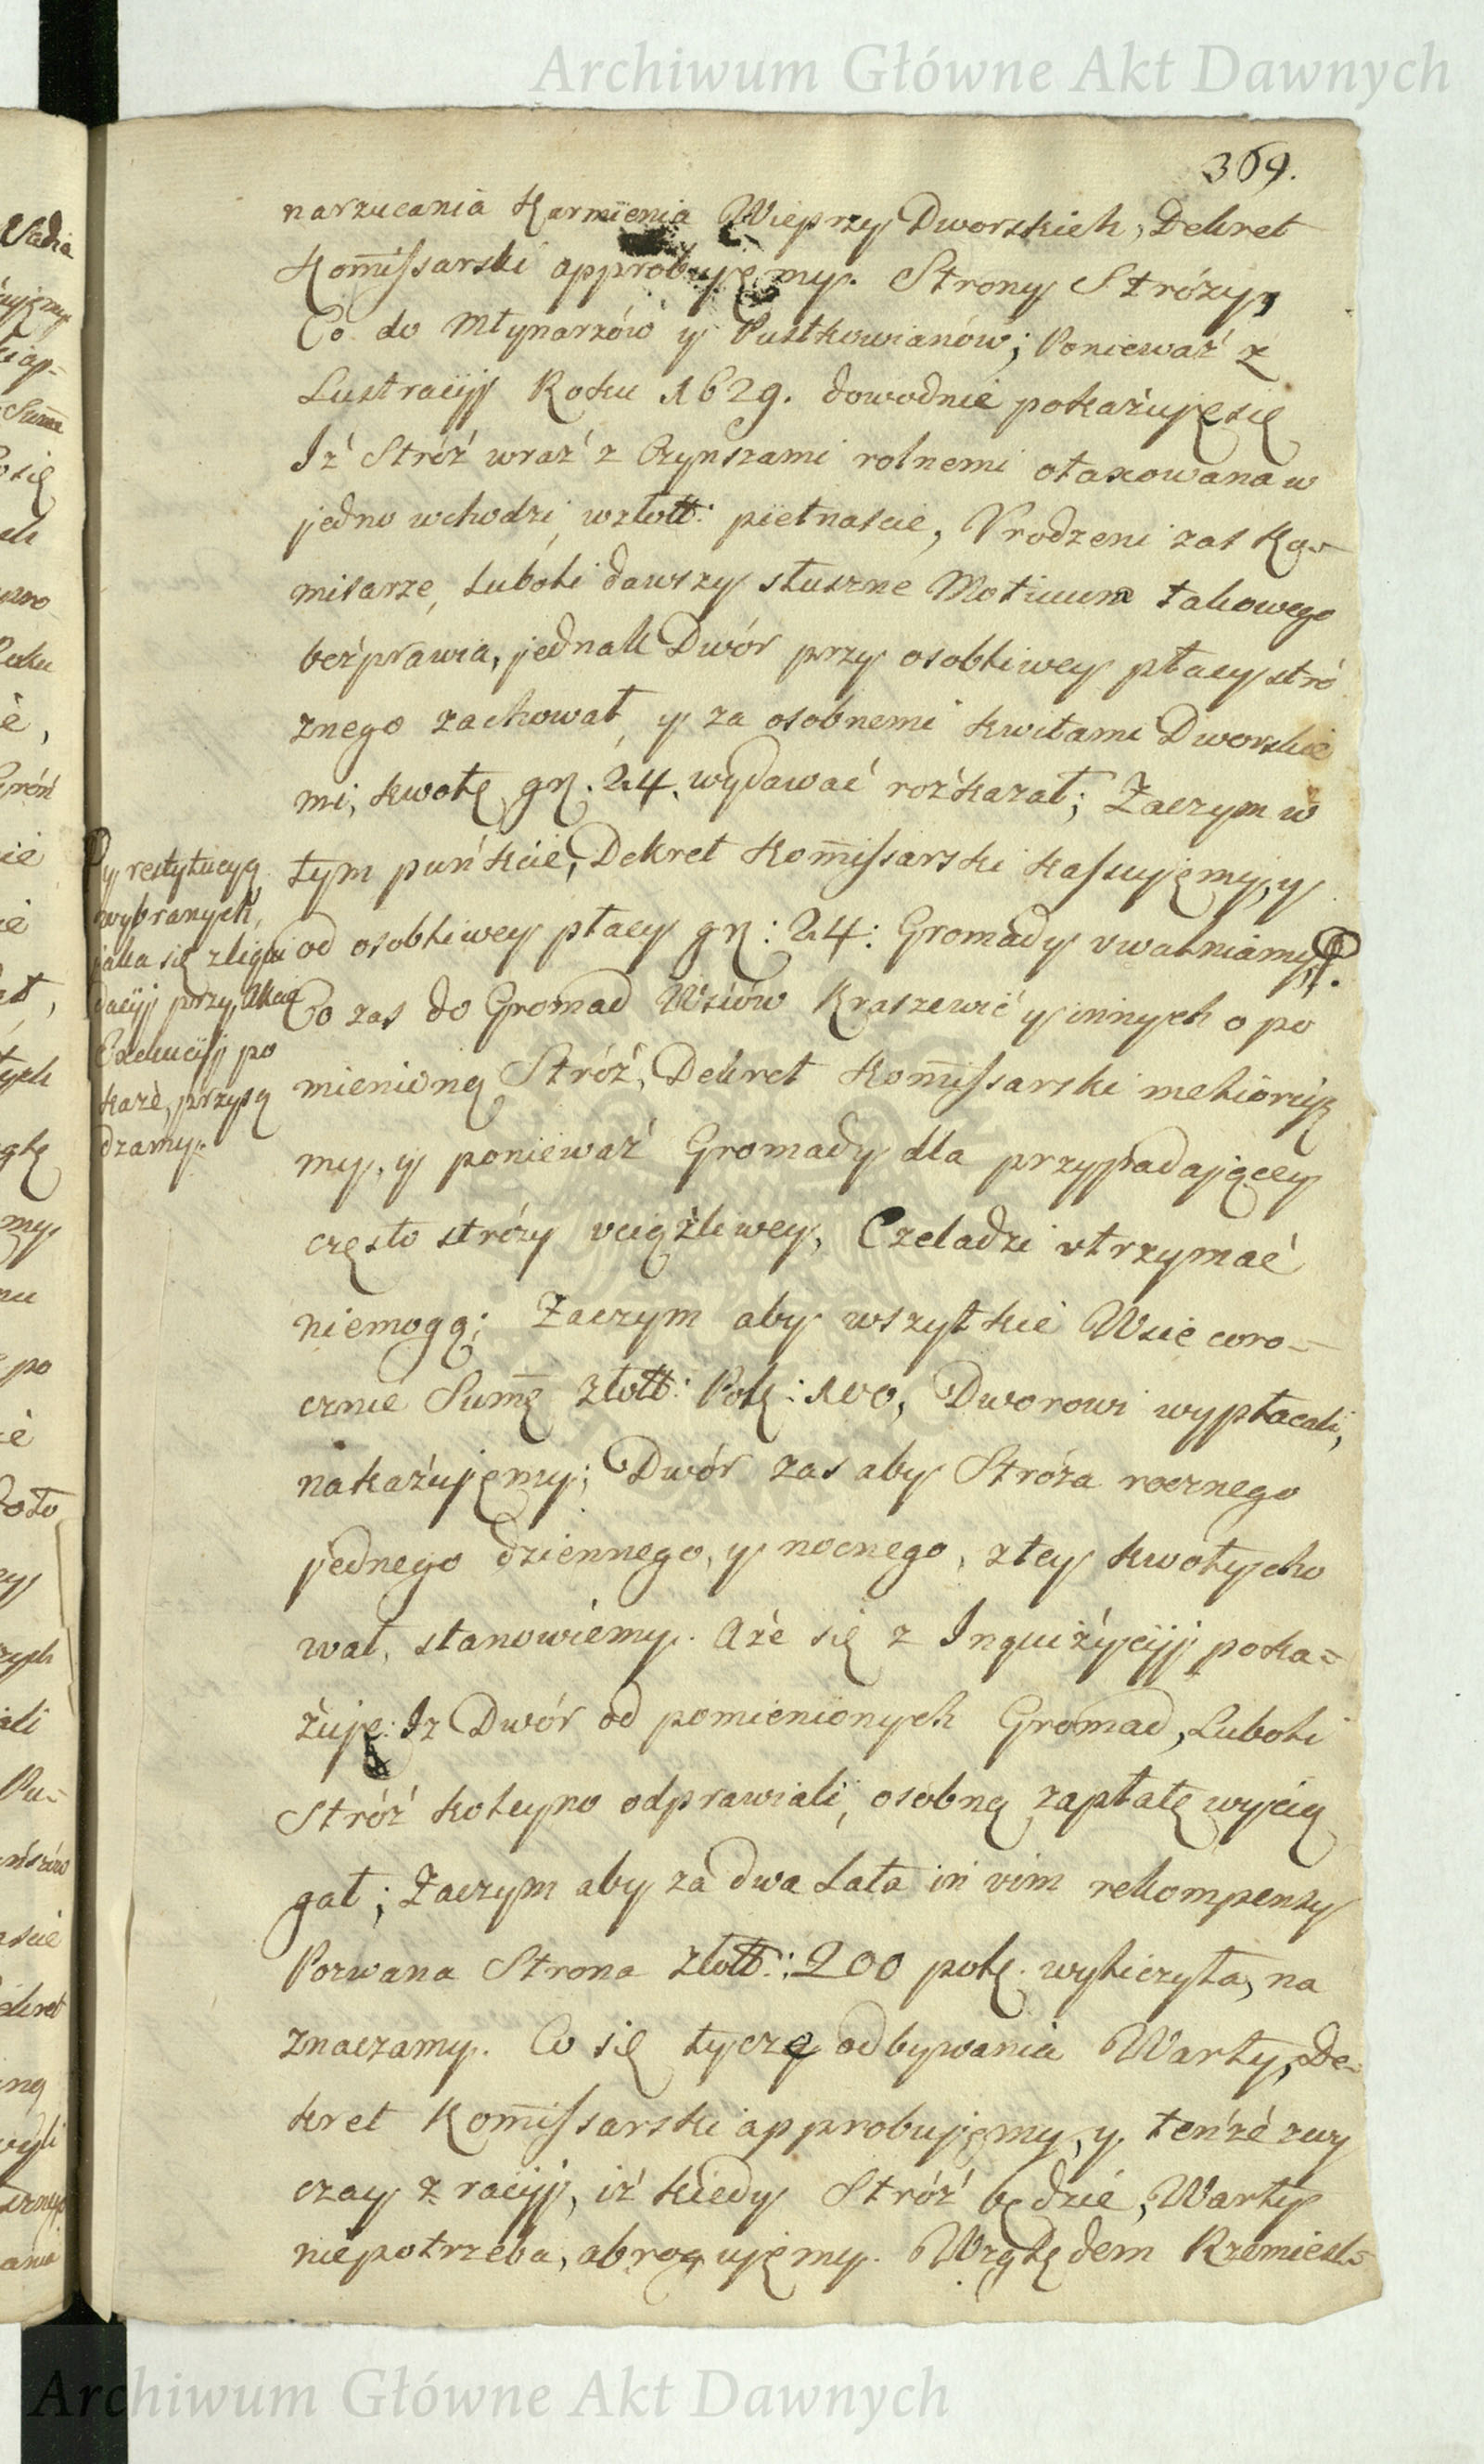 Archiwum Główne Akt Dawnych
369.
narzucania Karmienia Wieprzy Dworskich, Dekret
Kom̃issarski approbujęmy. Strony Stróży,
Co do Młynarzów y Pustkowianów; Ponieważ z
Lustracyi Roku 1629. dowodnie pokażuję się
Iż Stróż wraż z Czynszami rolnemi otaxowana w
jedno wchodzi w złott: piętnascie, Vrodzeni zas Ko-
misarze, Lubóli dawszy słuszne Motivum takowego
beżprawia, jednak Dwór przy osobliwey płacy stró
znego zachował, y za osobnemi kwitami Dworskie
mi, kwotę gr. 24. wydawać rożkazał; Zaczym w
tym puńkcie, Dekret Kom̃issarski kassujęmy, y
od osobliwey płacy gr: 24: Gromady vwalniamy.
Py restytucyą
wybranych,
jaka się zlikwi
dacyi przy Akcie
Exekucyi po
każe, przysą
dzamy.
Co zas do Gromad Wsiów Kraszewić y innych o po
mienioną Stróż, Dekret Kom̃issarski meliorują
my, y ponieważ Gromady dla przypadającey
często stróży vciążliwey, Czeladzi vtrzymać
niemogą; Zaczym aby wszytkie Wsie coro-
cznie Sum̃ę złott: Pol: 100, Dworowi wypłacali,
nakażujęmy; Dwór zas aby Stróża rocznego
jednego dziennego, y nocnego, z tey kwoty cho
wał, stanowiemy. Aże się z Inquiżycyi poka-
żuję: Iz Dwór od pomienionych Gromad, Luboli
Stróż koleyno odprawiali, osobną zapłatę wycią
gał; Zaczym aby za dwa Lata in vim rekompensy
Pozwana Strona złott: 200 pol. wyliczyła, na
znaczamy. Co się tyczę odbywania Warty, De-
kret Kom̃issarski approbujęmy, y tenże zwy
czay z racyi, iż kiedy Stróż będzie, Warty
niepotrzeba, abrogujęmy. Względem Rzemiesl-
Archiwum Główne Akt Dawnych